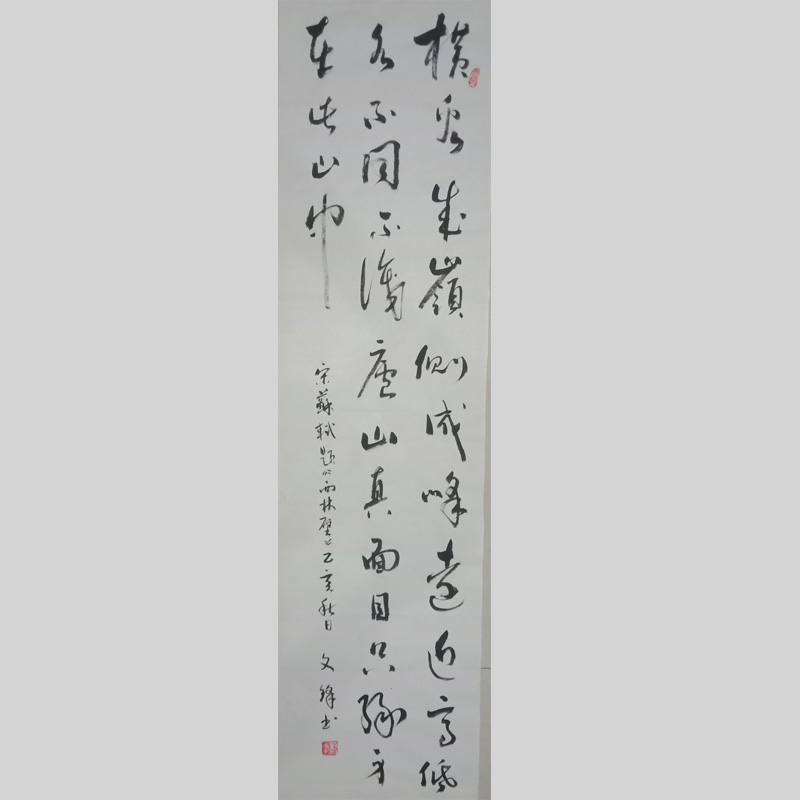 橫看成嶺側成峰遠近高低
各不同不識廬山真面目只緣身
在此山中
宋蘇軾題《西林壁》己亥秋日 文鋒書